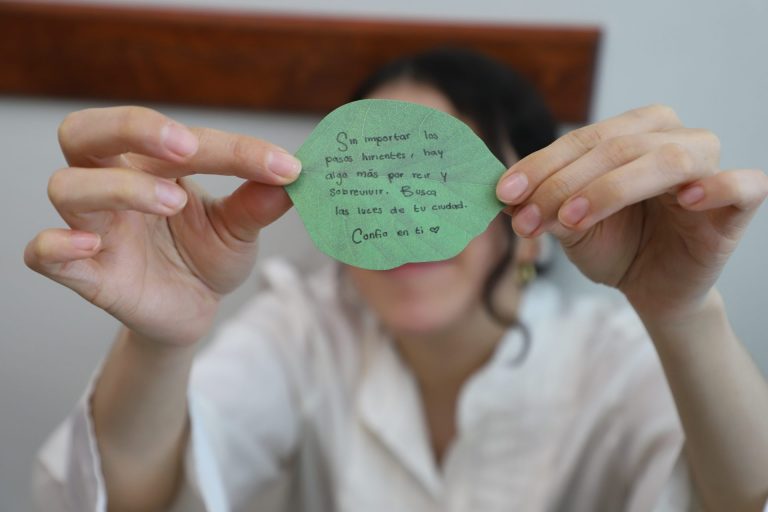 Sin importar los
pasos hirientes, hay
algo más por reir y
sobrevivir. Busca
las luces de tu ciudad.
Confia en ti ♡